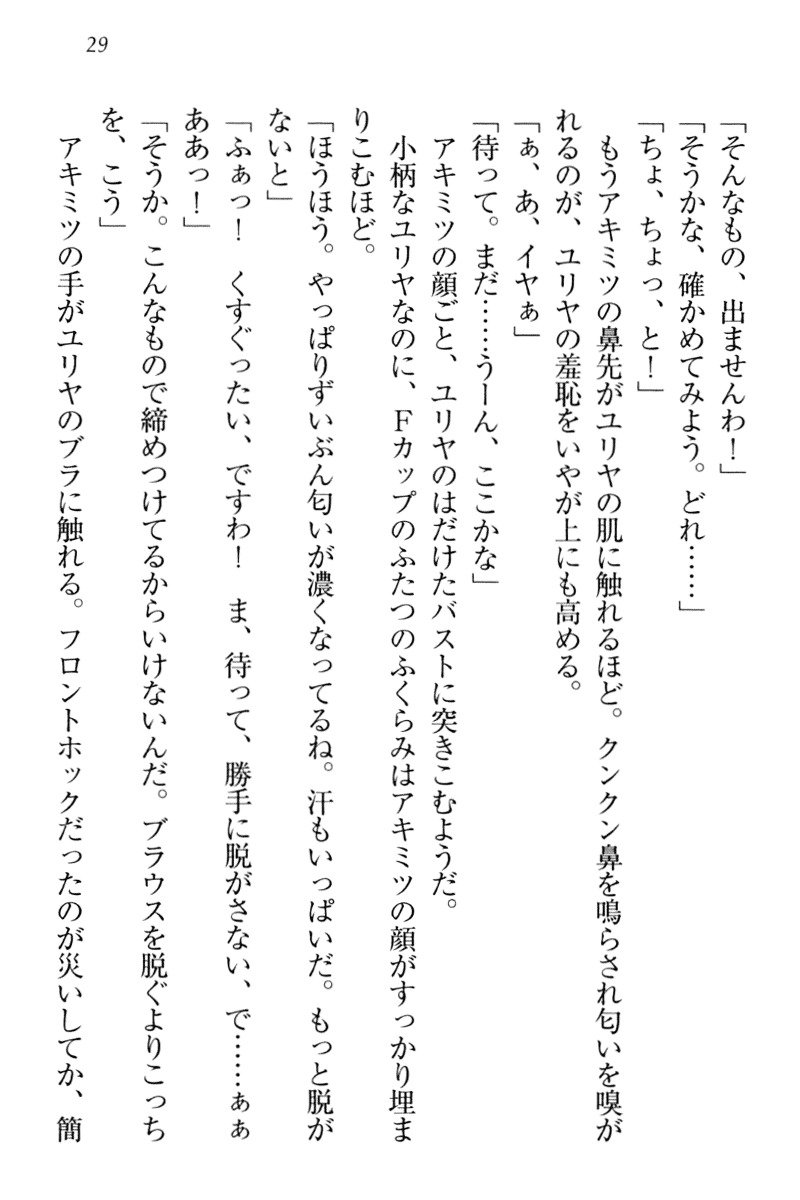 29
「そんなもの、出ませんわ！」
「そうかな、確かめてみよう。どれ……」
「ちょ、ちょっ、と！」
もうアキミツの鼻先がユリヤの肌に触れるほど。クンクン鼻を鳴らされ匂いを嗅が
れるのが、ユリヤの羞恥をいやが上にも高める。
「ぁ、あ、イヤぁ」
「待って。まだ……うーん、ここかな」
アキミツの顔ごと、ユリヤのはだけたバストに突きこむようだ。
小柄なユリヤなのに、Ｆカップのふたつのふくらみはアキミツの顔がすっかり埋ま
りこむほど。
「ほうほう。やっぱりずいぶん匂いが濃くなってるね。汗もいっぱいだ。もっと脱が
ないと」
「ふぁっ！　くすぐったい、ですわ！　ま、待って、勝手に脱がさない、で……ぁぁ
ああっ！」
「そうか。こんなもので締めつけてるからいけないんだ。ブラウスを脱ぐよりこっち
を、こう」
アキミツの手がユリヤのブラに触れる。フロントホックだったのが災いしてか、簡